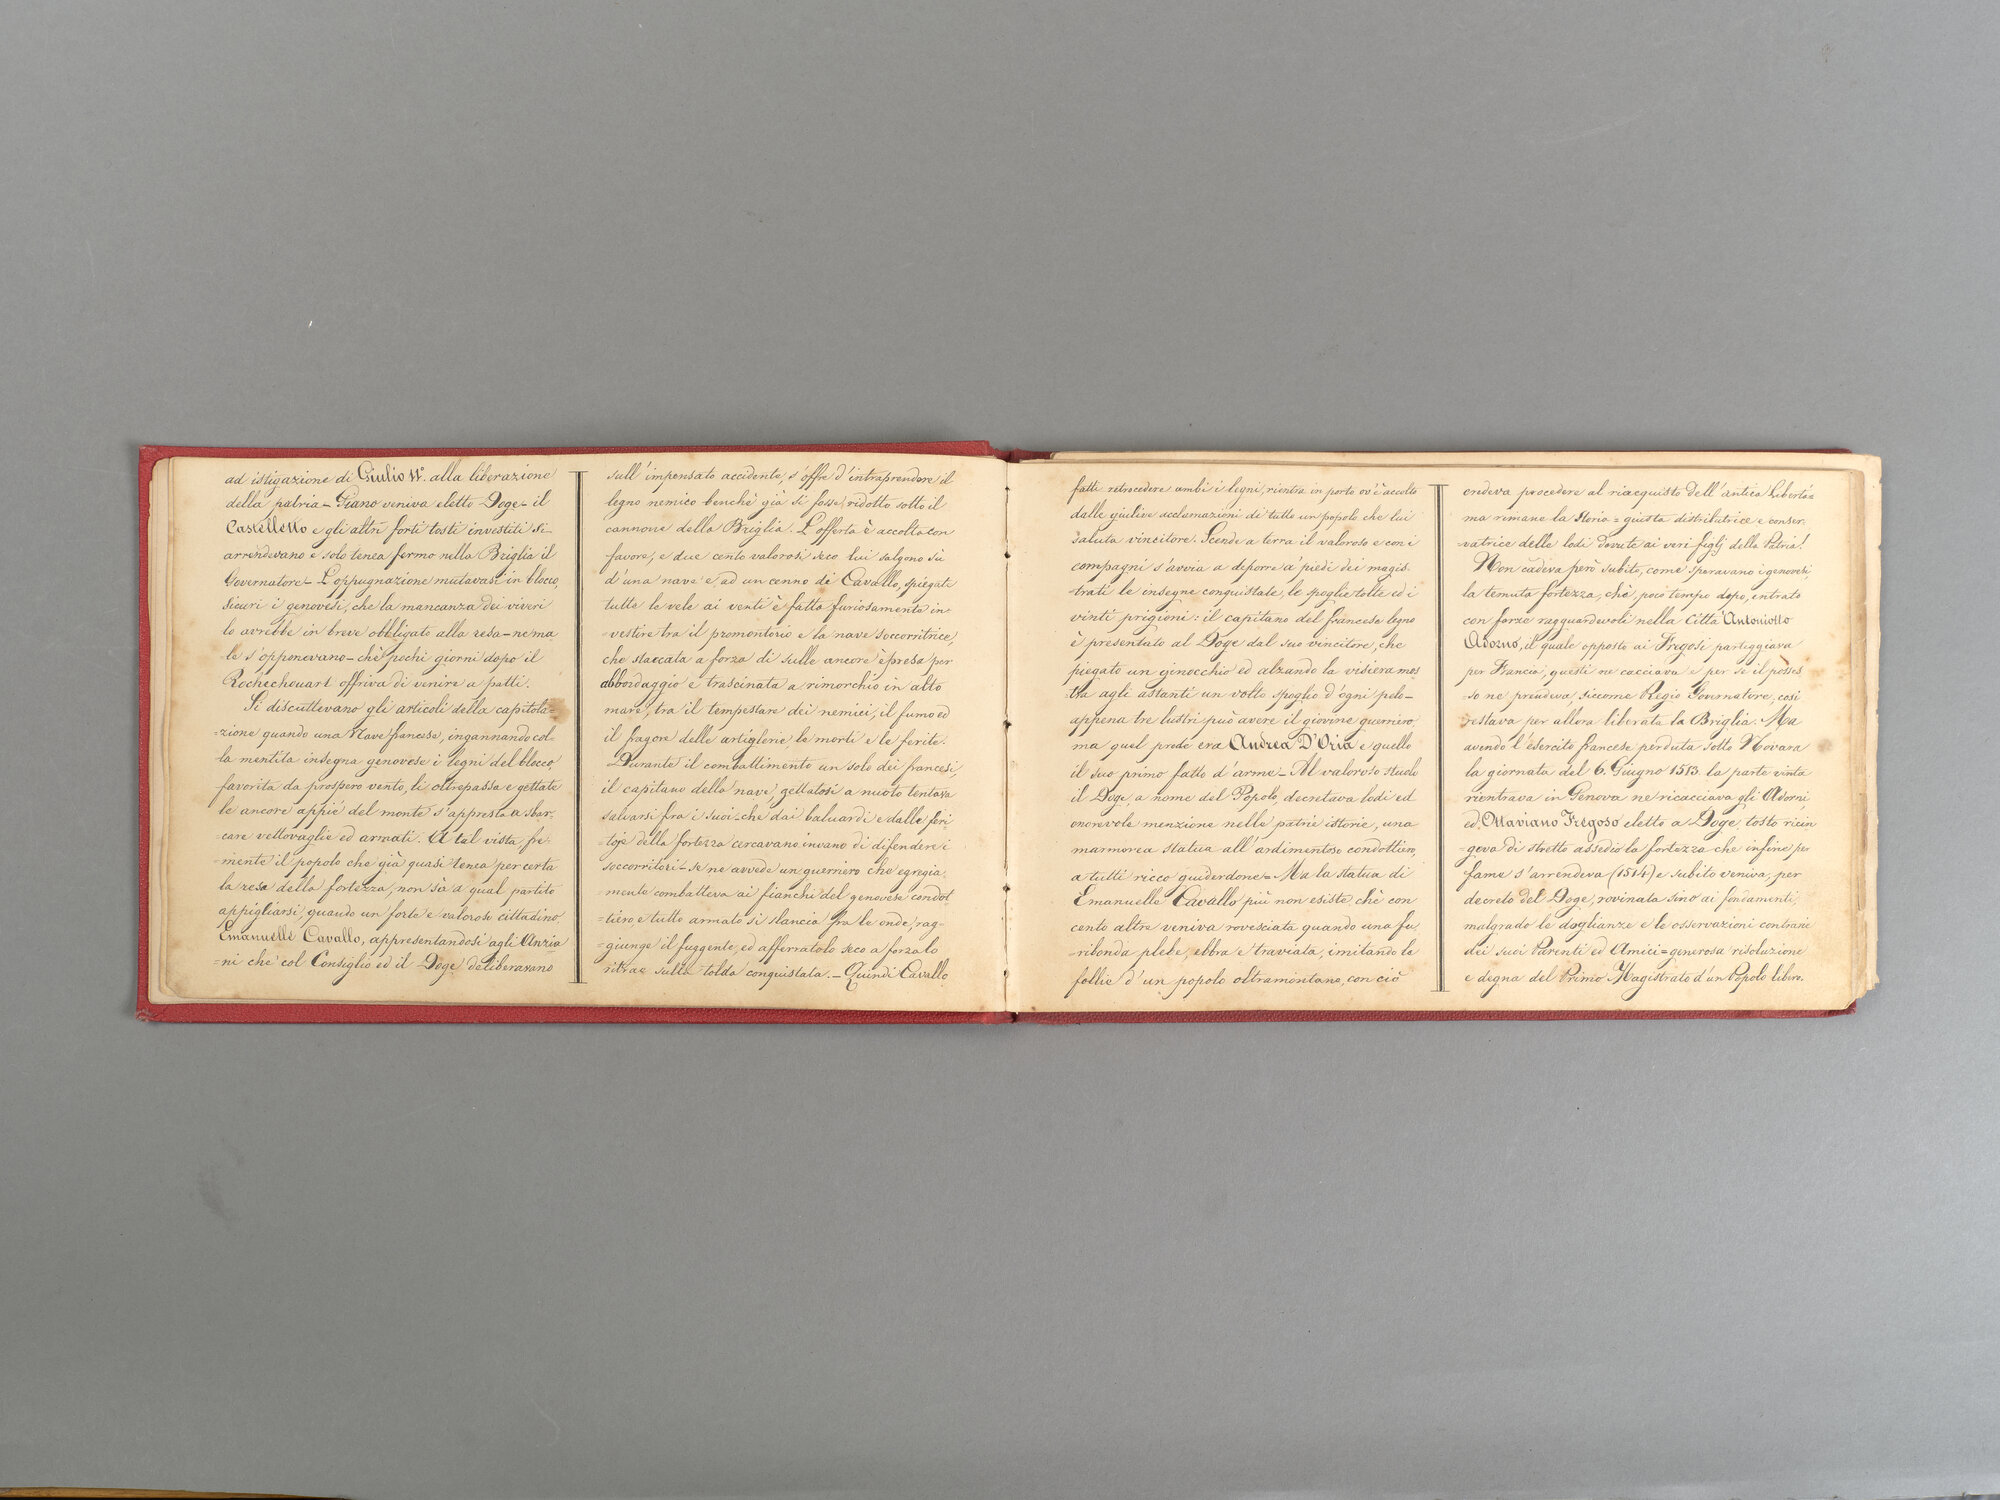 ad istigazione di Giulio II°. alla liberazione
della patria - Giano veniva eletto Doge - il
Castelletto e gli altri forti tosti investiti si
arrendevano e solo tenea fermo nella Briglia il
Governatore - L'oppugnazione mutavasi in blocco,
sicuri i genovesi, che la mancanza dei viveri
lo avrebbe in breve obbligato alla resa - ne ma
le s'opponevano - chè pochi giorni dopo il
Rochechouart offriva di venire a patti.
Si discuttevano gli articoli della capitola=
=zione quando una Nave francese, ingannando col=
la mentita insegna genovese i legni del blocco,
favorita da prospero vento, li oltrepassa e gettate
le ancore appiè del monte s'appresta a sbar.
care vettovaglie ed armati. A tal vista fre
=mente il popolo che già quasi tenea per certa
la resa della fortezza, non sà a qual partito
appigliarsi, quando un forte e valoroso cittadino
Emanuelle Cavallo, appresentandosi agli Anzia
=ni che col Consiglio ed il Doge deliberavano
sull'impensato accidente, s'offre d'intraprendere il
legno nemico benchè già si fosse ridotto sotto il
cannone della Briglia. L'offerta è accolta con
favore, e due cento valorosi seco lui salgono sù
d'una nave e ad un cenno di Cavallo, spiegate
tutte le vele ai venti è fatta furiosamente in=
=vestire tra il promontorio e la nave soccorritrice,
che staccata a forza di sulle ancore è presa per
abbordaggio e trascinata a rimorchio in alto
mare, tra il tempestare dei nemici, il fumo ed
il fragore delle artiglerie, le morti e le ferite.
Durante il combattimento un solo dei francesi,
il capitano della nave, gettatosi a nuoto tentava
salvarsi fra i suoi - che dai baluardi e dalle feri
=toje della fortezza cercavano invano di difendere i
soccorritori - Se ne avvede un guerriero che egregia
=mente combatteva ai fianchi del genovese condot
=tiero e tutto armato si slancia fra le onde, rag=
=giunge il fuggente, ed afferratolo seco a forza lo
ritrae sulla tolda conquistata. - Quindi Cavallo
fatti retrocedere ambi i legni, rientra in porto ov'è accolto
dalle giulive acclamazioni di tutto un popolo che lui
saluta vincitore. Scende a terra il valoroso e con i
compagni s'avvia a deporre a piedi dei magis.
trati le insegne conquistate, le spoglie tolte ed i
vinti prigioni: il capitano del francese legno
è presentato al Doge dal suo vincitore, che
piegato un ginocchio ed alzando la visiera mos
tra agli astanti un volto spoglio d'ogni pelo -
appena tre lustri può avere il giovine guerriero,
ma quel prode era Andrea D'Oria e quello
il suo primo fatto d'arme - Al valoroso stuolo
il Doge, a nome del Popolo, decretava lodi ed
onorevole menzione nelle patrie istorie, una
marmorea statua all'ardimentoso condottiero,
a tutti ricco guiderdone - Ma la statua di
Emanuelle Cavallo più non esiste, chè con
cento altre veniva rovesciata quando una fu.
=ribonda plebe, ebbra e traviata, imitando le
follie d'un popolo oltramontano, con ciò
credeva procedere al riacquisto dell'antica Libertà =
ma rimane la Storia = giusta distributrice e conser.
vatrice delle lodi dovute ai veri figlj della Patria!
Non cadeva però subito, come speravano i genovesi,
la temuta fortezza, chè, poco tempo dopo, entrato
con forze ragguardevoli nella Città Antoniotto
Adorno, il quale opposto ai Fregosi parteggiava
per Francia, questi ne cacciava e per se il posses
so ne prendeva siccome Regio Governatore, così
restava per allora liberata la Briglia. Ma
avendo l'esercito francese perduta sotto Novara
la giornata del 6. Giugno 1513. la parte vinta
rientrava in Genova ne ricacciava gli Adorni
ed Ottaviano Fregoso eletto a Doge, tosto ricin
=geva di stretto assedio la fortezza che infine per
fame s'arrendeva (1514) e subito veniva, per
decreto del Doge, rovinata sino ai fondamenti,
malgrado le doglianze e le osservazioni contrarie
dei suoi Parenti ed Amici = generosa risoluzione
e degna del Primo Magistrato d'un Popolo libero.